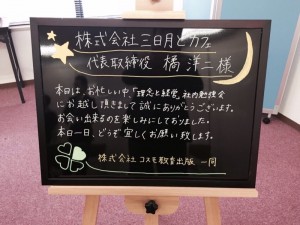 株式会社三日月とカフェ
代表取締役 橘 洋二 様
本日は、お忙しい中、『理念と経営』社内勉強会
にお越し頂きまして誠にありがとうございます。
お会い出来るのを楽しみにしておりました。
本日一日、どうぞ宜しくお願い致します。
株式会社 コスモ教育出版 一同